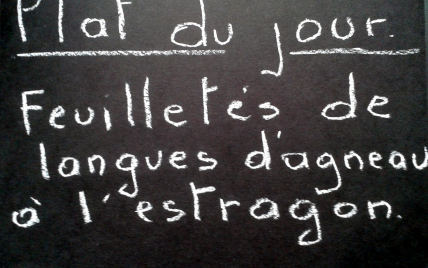 Plat du jour.
Feuilletés de
langues d'agneau
à l'estragon.